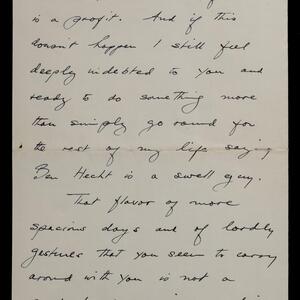 is a profit. And if this
doesn't happen I still feel
deeply indebted to you and
ready to do something more
than simply go round for
the rest of my life saying
Ben Hecht is a swell guy.
That flavor of more
spacious days and of lordly
gestures that you seem to carry
around with you is not a